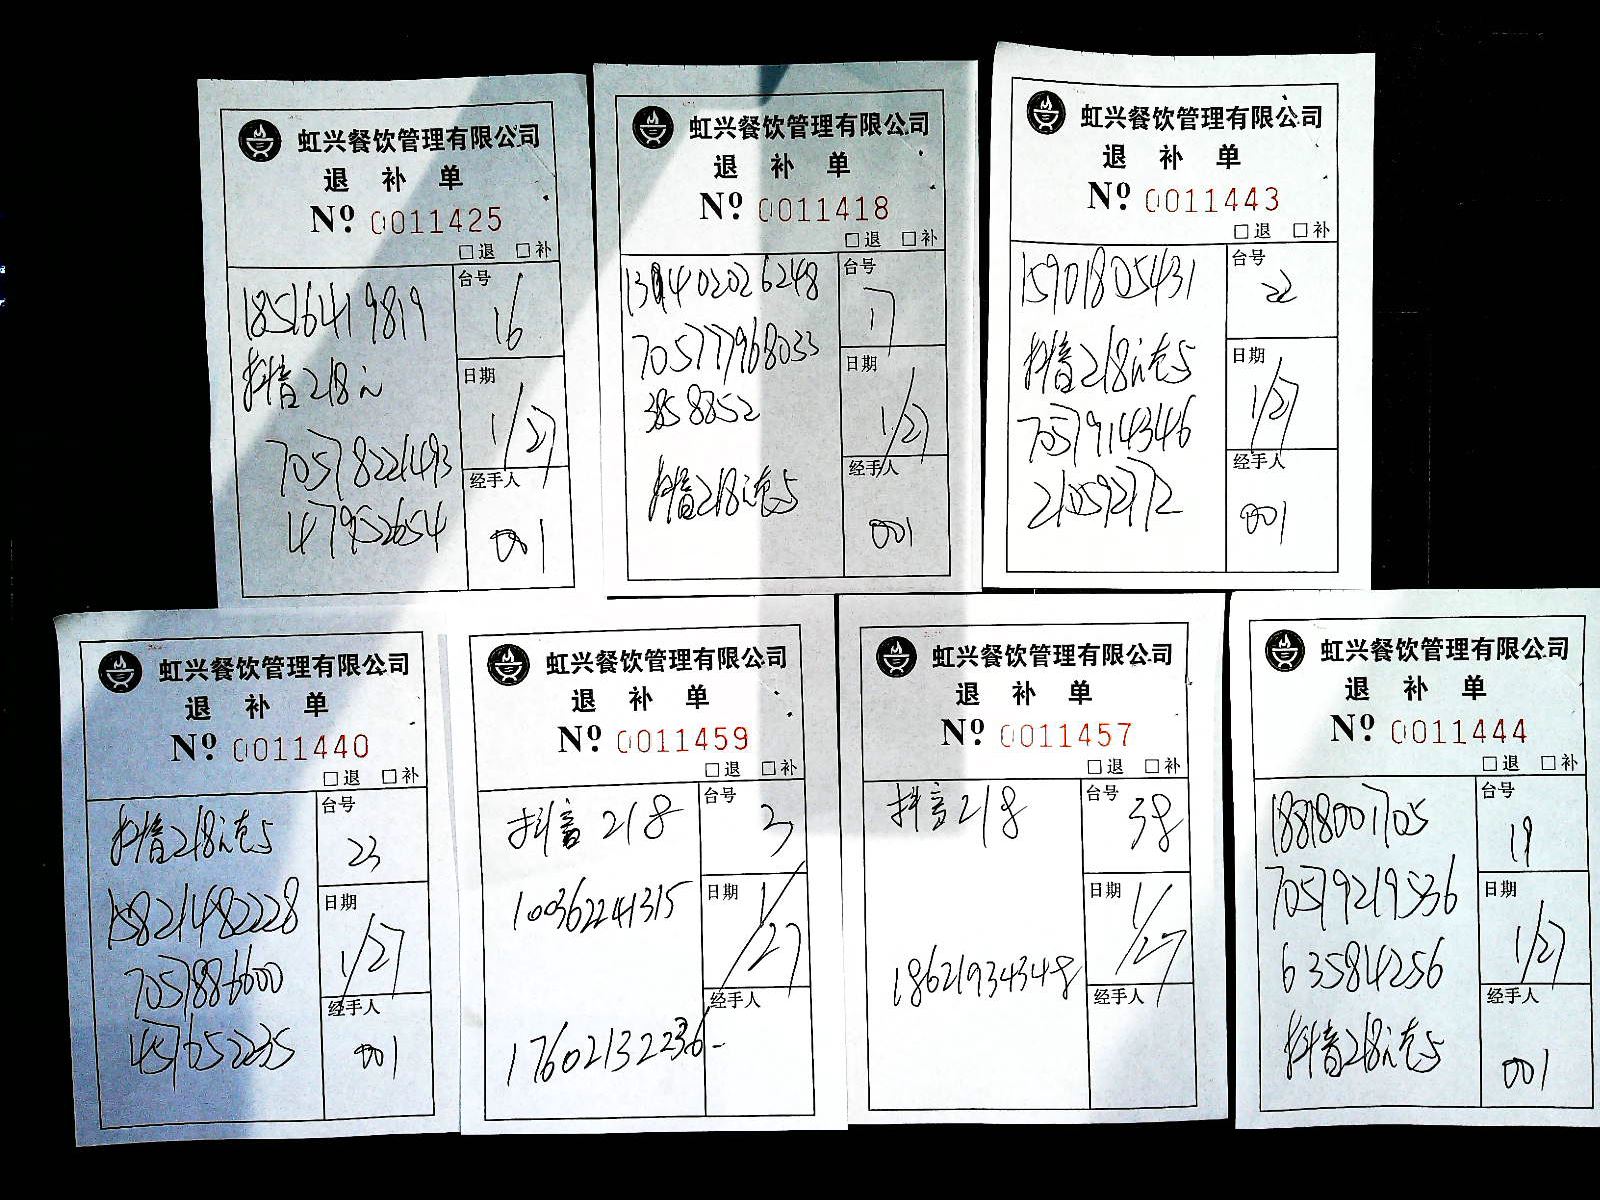 虹兴餐饮管理有限公司
退 补 单
Nº 0011425
□退 □补
18516419819
台号
16
抖音218元
日期
1/27
705782221493
经手人
47952654
001
虹兴餐饮管理有限公司
退 补 单
Nº 0011418
□退 □补
台号
17
705777968033
日期
3858852
1/27
经手人
抖音218元
001
虹兴餐饮管理有限公司
退 补 单
Nº 0011443
□退 □补
15901805431
台号
22
抖音218元
日期
1/27
70579143466
经手人
210592772
001
虹兴餐饮管理有限公司
退 补 单
Nº 0011440
□退 □补
抖音218元
台号
23
15821482228
日期
1/27
7057886600
经手人
457652235
001
虹兴餐饮管理有限公司
退 补 单
Nº 0011459
□退 □补
抖音218
台号
3
100362241315
日期
1/27
经手人
17602132236
虹兴餐饮管理有限公司
退 补 单
Nº 0011457
□退 □补
抖音218
台号
38
日期
1/27
18621934348
经手人
虹兴餐饮管理有限公司
退 补 单
Nº 0011444
□退 □补
18818001705
台号
19
70579219536
日期
1/27
63584256
经手人
抖音218元
001